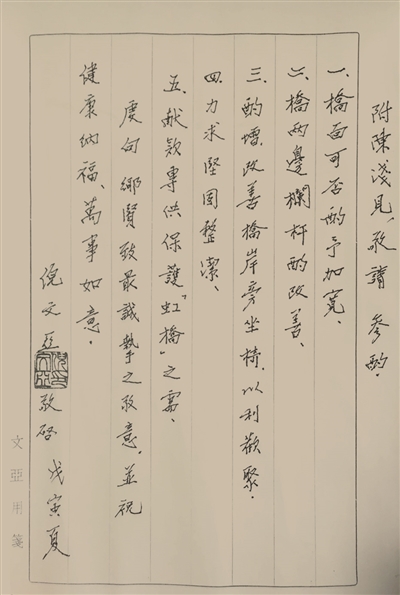 附陳淺見、敬請參酌．
一、橋面可否酌予加寬、
二、橋兩邊欄杆酌改善、
三、酌增、改善橋岸旁坐椅、以利歡聚．
四、力求堅固整潔、
五、献欵專供保護"虹橋"之需、
虔向鄉賢致最誠摯之敬意、並祝
健康納福、萬事如意．
倪文亞敬啓 戊寅夏
文亞用箋